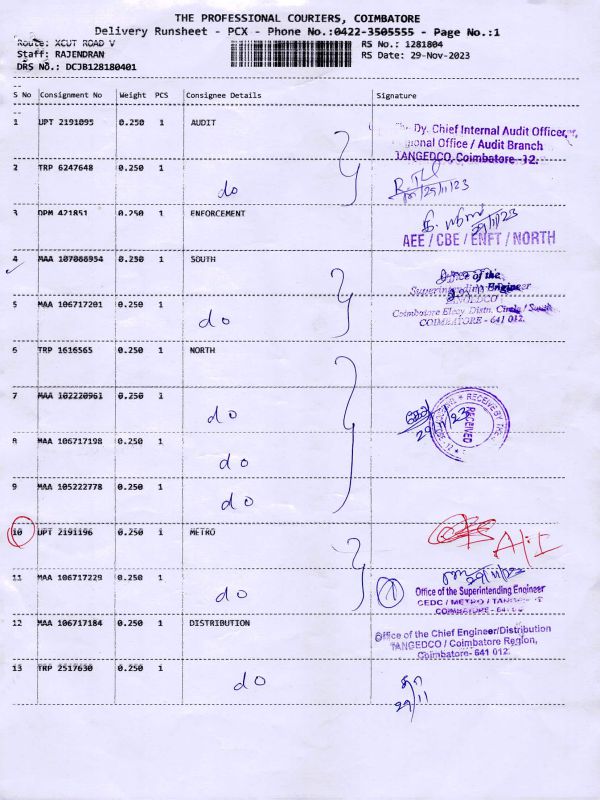 THE PROFESSIONAL COURIERS, COIMBATORE
Delivery Runsheet - PCX - Phone No.:0422-3505555 - Page No.:1
Route: XCUT ROAD V
RS No.: 1281804
Staff: RAJENDRAN
RS Date: 29-Nov-2023
DRS No.: DCJB128180401
S No Consignment No Weight PCS Consignee Details Signature
1 UPT 2191095 0.250 1 AUDIT
Dy. Chief Internal Audit Officer,
Office / Audit Branch
TANGEDCO, Coimbatore -12.
2 TRP 6247648 0.250 1 do
29/11/23
3 DPM 421851 0.250 1 ENFORCEMENT
29/11/23
AEE / CBE / ENFT / NORTH
4 MAA 0.250 1 SOUTH
of the
Superintending Engineer
5 MAA 106717201 0.250 1 do
Coimbatore Elecy. Distn. Circle / South
COIMBATORE - 641 012.
6 TRP 1616565 0.250 1 NORTH
7 MAA 102220961 0.250 1 do
RECEIVED
29/11/23
8 MAA 106717198 0.250 1 do
9 MAA 105222778 0.250 1 do
10 UPT 2191196 0.250 1 METRO
11 MAA 106717229 0.250 1 do
1
Office of the Superintending Engineer
CEDC / METRO /
COIMBATORE
12 MAA 106717184 0.250 1 DISTRIBUTION
Office of the Chief Engineer/Distribution
TANGEDCO / Coimbatore Region,
Coimbatore- 641 012.
13 TRP 2517630 0.250 1 do
29/11